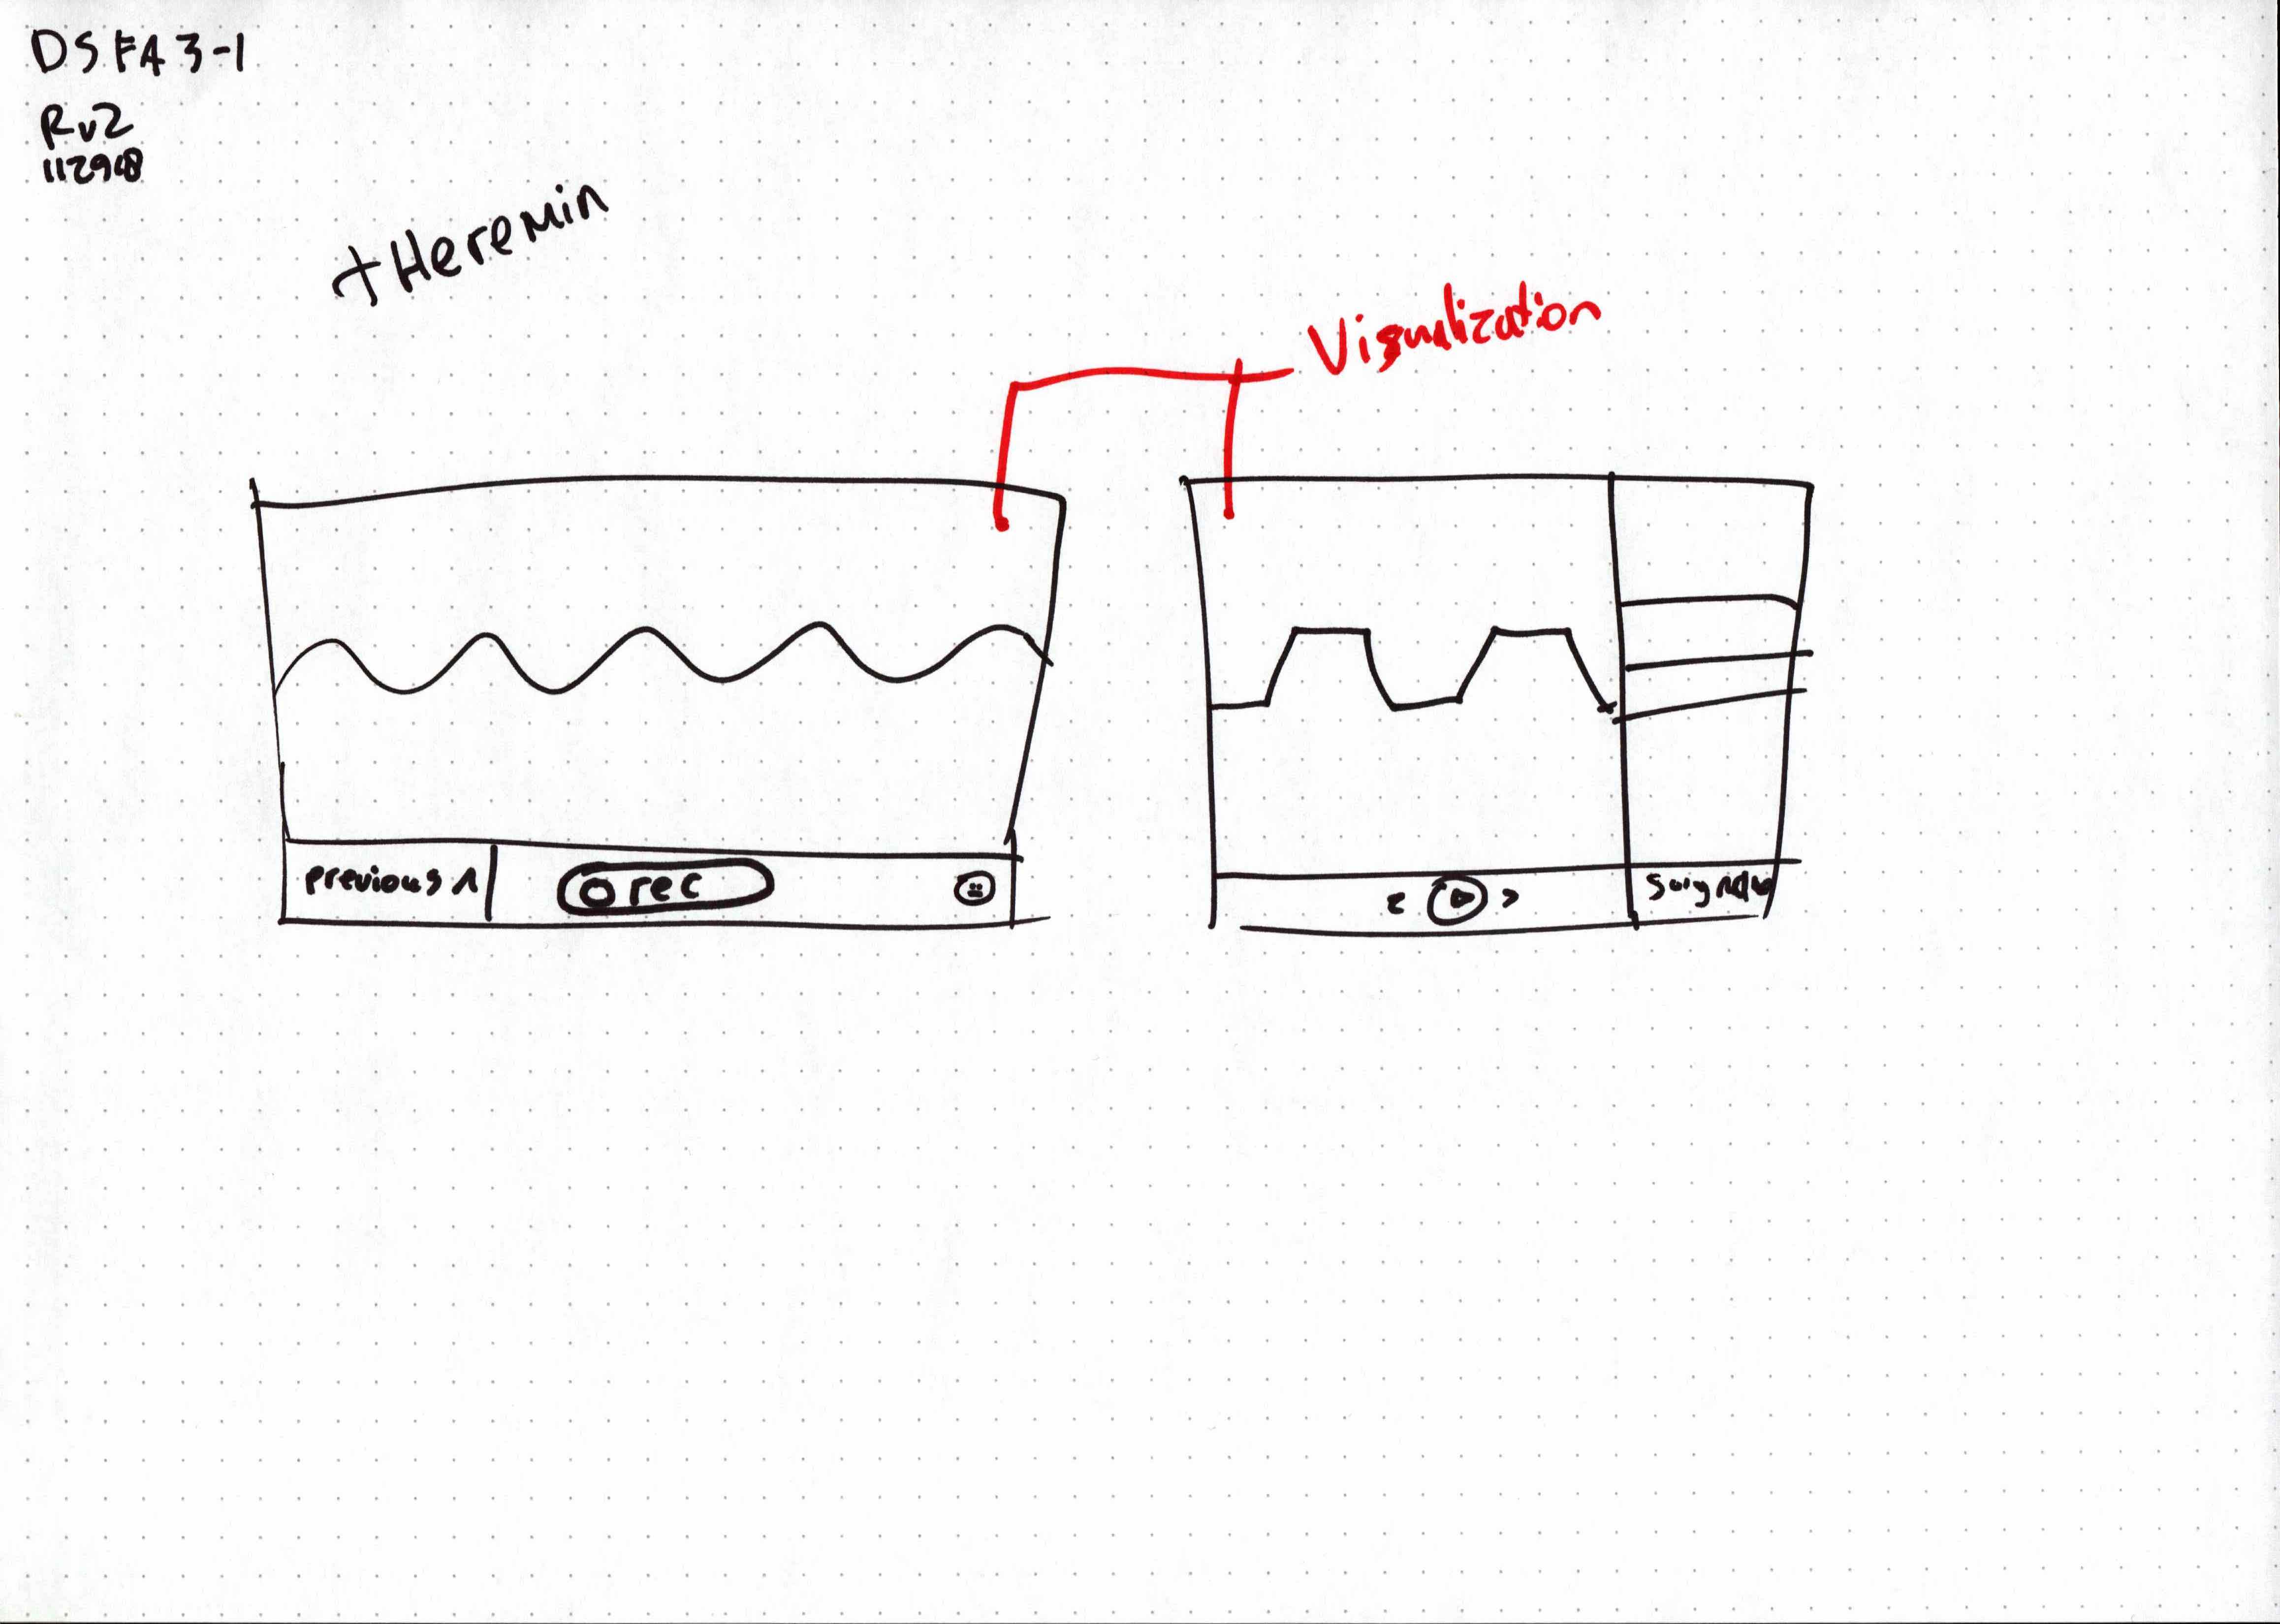 DSFA3-1
Rv2
112918
tHeremin
Visualization
previous ^
rec
< >